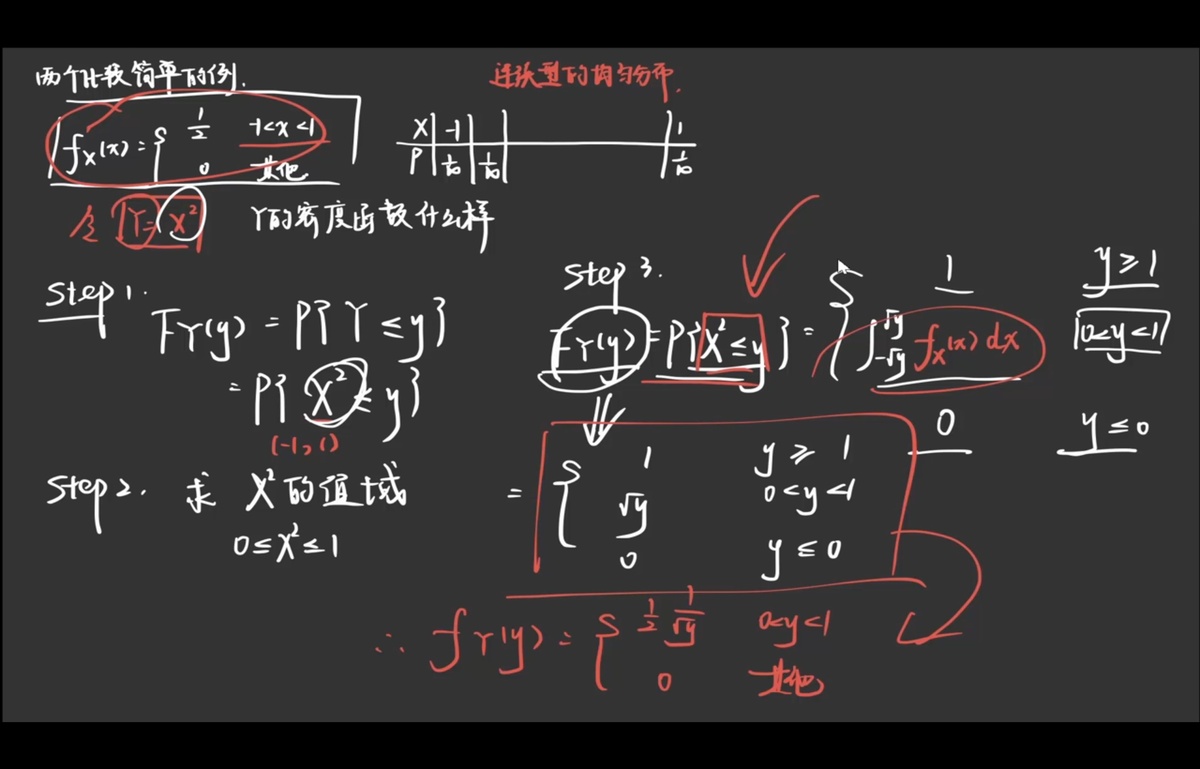 两个比较简单的例.
连续型的均匀分布.
f_X(x) = { 1/2 -1<x<1
0 其他
X | -1 | | 1
P | 1/10 | 1/10 | 1/10
令 Y = X²
Y的密度函数什么样
Step 1.
F_Y(y) = P{ Y ≤ y }
= P{ X² ≤ y }
(-1, 1)
Step 2. 求 X² 的值域
0 ≤ X² ≤ 1
Step 3.
F_Y(y) = P{ X² ≤ y } = { 1 y ≥ 1
∫_{-√y}^{√y} f_X(x) dx 0<y<1
0 y ≤ 0
= { 1 y ≥ 1
√y 0<y<1
0 y ≤ 0
∴ f_Y(y) = { 1/2 1/√y 0<y<1
0 其他